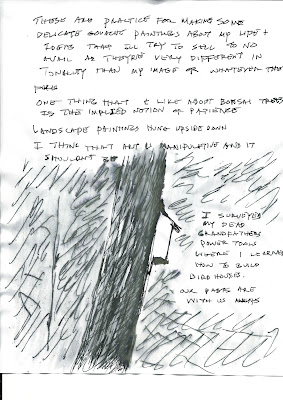 THESE ARE PRACTICE FOR MAKING SOME
DELICATE GOUACHE PAINTINGS ABOUT MY LIFE +
THAT I'LL TRY TO SELL TO NO
AVAIL AS THEY'RE VERY DIFFERENT IN
TONALITY THAN MY IMAGE OR WHATEVER THE
ONE THING THAT I LIKE ABOUT BONSAI TREES
IS THE IMPLIED NOTION OF PATIENCE
LANDSCAPE PAINTINGS HUNG UPSIDE DOWN
I THINK THAT ART IS MANIPULATIVE AND IT
SHOULDN'T BE
I SURVEYED
MY DEAD
GRANDFATHERS
POWER TOOLS
WHERE I LEARNED
HOW TO BUILD
BIRD HOUSES.
OUR PASTS ARE
WITH US ALWAYS